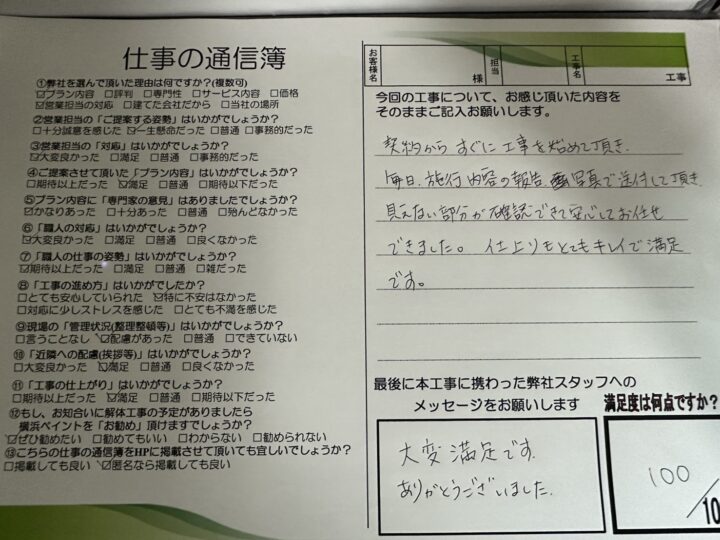 仕事の通信簿
①弊社を選んで頂いた理由は何ですか?(複数可)
☑プラン内容 □評判 □専門性 □サービス内容 □価格
☑営業担当の対応 □建てた会社だから □当社の場所
②営業担当の「ご提案する姿勢」はいかがでしょうか?
□十分誠意を感じた ☑一生懸命だった □普通 □事務的だった
③営業担当の「対応」はいかがでしょうか?
☑大変良かった □満足 □普通 □事務的だった
④ご提案させて頂いた「プラン内容」はいかがでしょうか?
□期待以上だった ☑満足 □普通 □期待以下だった
⑤プラン内容に「専門家の意見」はありましたでしょうか?
☑かなりあった □十分あった □普通 □殆んどなかった
⑥「職人の対応」はいかがでしょうか?
☑大変良かった □満足 □普通 □良くなかった
⑦「職人の仕事の姿勢」はいかがでしょうか?
☑期待以上だった □満足 □普通 □雑だった
⑧「工事の進め方」はいかがでしたか?
□とても安心していられた ☑特に不安はなかった
□対応に少しストレスを感じた □とても不満を感じた
⑨現場の「管理状況(整理整頓等)」はいかがでしょうか?
□言うことなし ☑配慮があった □普通 □できていない
⑩「近隣への配慮(挨拶等)」はいかがでしょうか?
□大変良かった ☑満足 □普通 □良くなかった
⑪「工事の仕上がり」はいかがでしょうか?
□期待以上だった ☑満足 □普通 □期待以下だった
⑫もし、お知合いに解体工事の予定がありましたら
横浜ペイントを「お勧め」頂けますでしょうか?
☑ぜひ勧めたい □勧めてもいい □わからない □勧められない
⑬こちらの仕事の通信簿をHPに掲載させて頂いても宜しいでしょうか?
□掲載しても良い ☑匿名なら掲載しても良い
お客様名 様 担当 工事名 工事
今回の工事について、お感じ頂いた内容を
そのままご記入お願いします。
契約から すぐに工事を始めて頂き.
毎日.施行内容の報告.写真で送付して頂き.
見えない部分が確認できて安心してお任せ
できました。 仕上りもとてもキレイで満足
です。
最後に本工事に携わった弊社スタッフへの
メッセージをお願いします
大変満足です.
ありがとうございました.
満足度は何点ですか?
100
/10